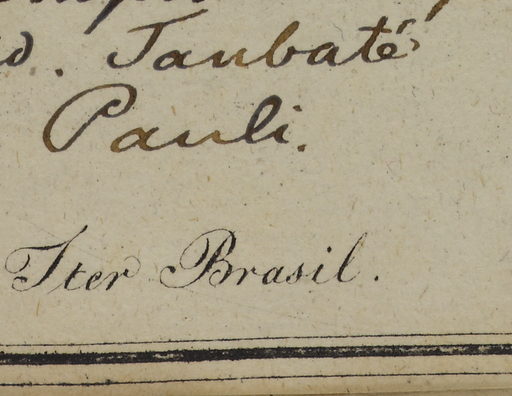 d. Taubaté
Pauli.
Iter Brasil.